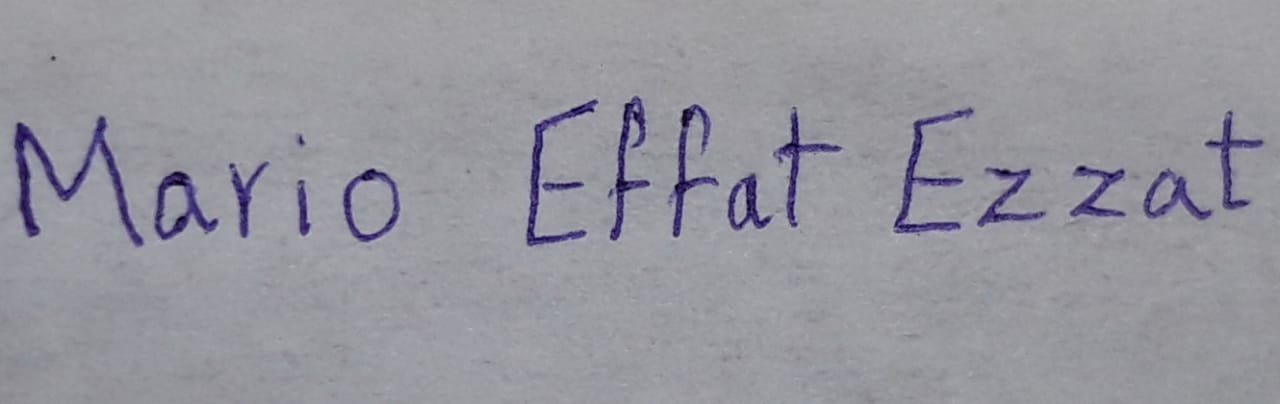 Mario Effat Ezzat